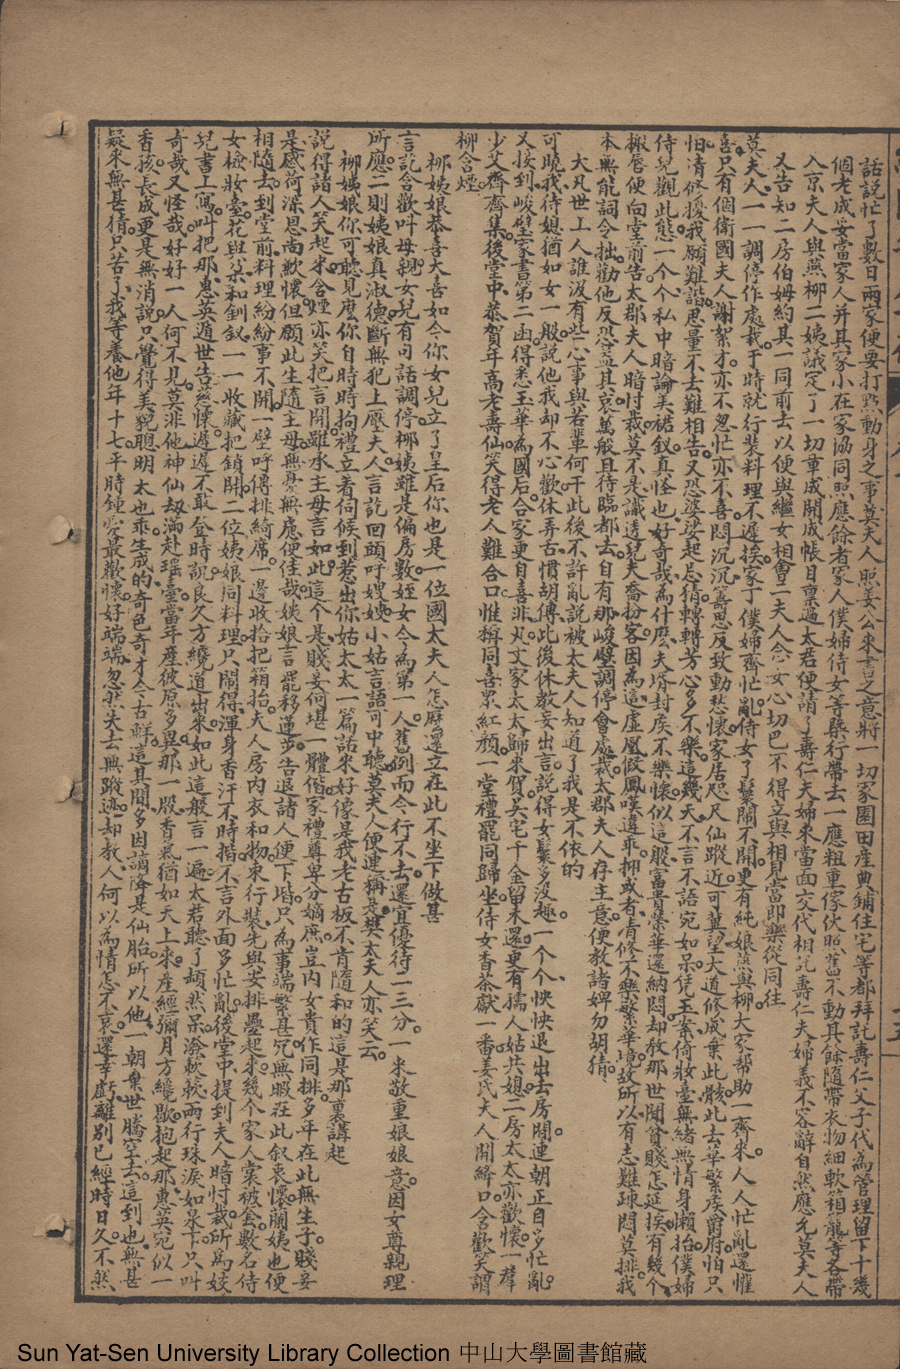 話說忙了數日兩家便要打點動身之事莫夫人照姜公來書之意將一切家園田產典鋪住宅等都拜託壽仁父子代為管理留下十幾
個老成妥當家人并其家小在家協同照應餘者家人僕婦侍女等槩行帶去一應粗重傢伙照舊不動其餘隨帶衣物細軟箱籠等各帶
入京夫人與燕柳二姨議定了一切事成開成帳目禀過太君便請了壽仁夫婦來當面交代相託壽仁夫婦義不容辭自然應允莫夫人
又告知二房伯姆約具一同前去以便與繼女相會一夫人念女心切巴不得立與相見當即樂從同往
莫夫人一一調停作處裁于時就行裝料理不遲挨家丁僕婦齊忙亂侍女丫鬟鬧不開更有純娘燕與柳大家帮助一齊來人人忙亂還惟
喜只有個衛國夫人謝絮才亦不忽忙亦不喜悶沉沉籌思反致動愁懷家居咫尺仙蹤近可冀望大道修成棄此骸此去華繁侯爵府怕只
怕清修擾我願難諧思量不去難相告又恐婆婆起忌猜轉轉芳心多不樂這幾天不言不語宛如呆凭玉案倚妝臺無緒無情身懶抬僕婦
侍兒觀此態一个个私中暗論美裙釵真怪也好奇哉為什麽夫壻封侯不樂懷似這般富貴榮華還納悶却教那世間貧賤怎延挨有幾个
搬唇便向堂前告太郡夫人暗忖裁莫不是識透兒夫喬扮客因為這虛凰假鳳嘆違乖抑或者清修不樂繁華境故所以有志難疎悶莫排我
本無能詞令拙勸他反恐益其哀萬般且待臨都去自有那峻壁調停會處裁太郡夫人存主意便教諸婢勿胡猜
大凡世上人誰沒有些心事與若輩何干此後不許亂說被太夫人知道了我是不依的
可曉我待媳猶如女一般說他我却不心歡休弄古慣胡傳此後休教妄出言說得女鬟多沒趣一个个怏怏退出去房間連朝正自多忙亂
又接到峻壁家書第二函得悉玉華為國后合家更自喜非凡文家太太歸來賀吳宅千金留未還更有孺人姑共媳二房太太亦歡懷一羣
少艾齊齊集後堂中恭賀年高老壽仙笑得老人難合口惟稱同喜累紅顏一堂禮罷同歸坐侍女香茶獻一番姜氏夫人開絳口含歡笑謂
柳含烟
柳姨娘恭喜大喜如今你女兒立了皇后你也是一位國太夫人怎麽還立在此不坐下做甚
言說含歡叫母親女兒有句話調停柳姨雖是偏房數姪女今為第一人舊例而今行不去還宜優待一三分一來敬重娘娘意因女尊親理
所應二則姨娘真淑德斷無犯上壓夫人言訖回頭吁嫂姨小姑言語可中聽莫夫人便連稱是樊太夫人亦笑云
柳姨娘你可聽見麽你自時時拘禮立着伺候到惹出你姑太太一篇話來好像是我老古板不肯隨和的這是那裏講起
說得諸人笑起來含烟亦笑把言開雖承主母言如此這个是賤妾何堪一體偕家禮尊卑分嫡庶豈內女貴作同排多年在此無生子賤妾
是感荷深恩尚歉懷但願此生隨主母無憂無慮便佳哉姨娘言罷移蓮步告退諸人便下堦只為事端繁甚冗無暇在此叙衷懷蘭姨也便
相隨去到堂前料理紛紛事不開一壁呼僮排綺席一邊收拾把箱抬夫人房內衣和物束行裝先與安排疊起來幾个家人裳被套數名侍
女檢妝臺花與朵和釧釵一一收藏把鎖開二位姨娘同料理只鬧得渾身香汗不時揩不言外面多忙亂後堂中提到夫人暗忖裁所為妓
兒書上寫叫把那惠英遁世告慈懷遲遲不敢登時說良久方纔道出來如此這般言一遍太君聽了頓然呆潑歕歕兩行珠淚如泉下只叫
奇哉又怪哉好好一人何不見莫非他神仙刧滿赴瑶臺當年產彼原多異那一股香氣猶如天上來產經彌月方纔歇抱起那惠英宛似一
香孩長成更是無消說只覺得美貌聰明太也乖生成的奇色奇才今古鮮這其間多因謫降是仙胎所以他一朝棄世騰空去這到也無甚
疑來無甚猜只苦了我等養他年十七平時鍾愛最歡懷好端端忽然失去無蹤迹却教人何以為情怎不哀還幸虧離別已經時日久不然
Sun Yat-Sen University Library Collection 中山大學圖書館藏